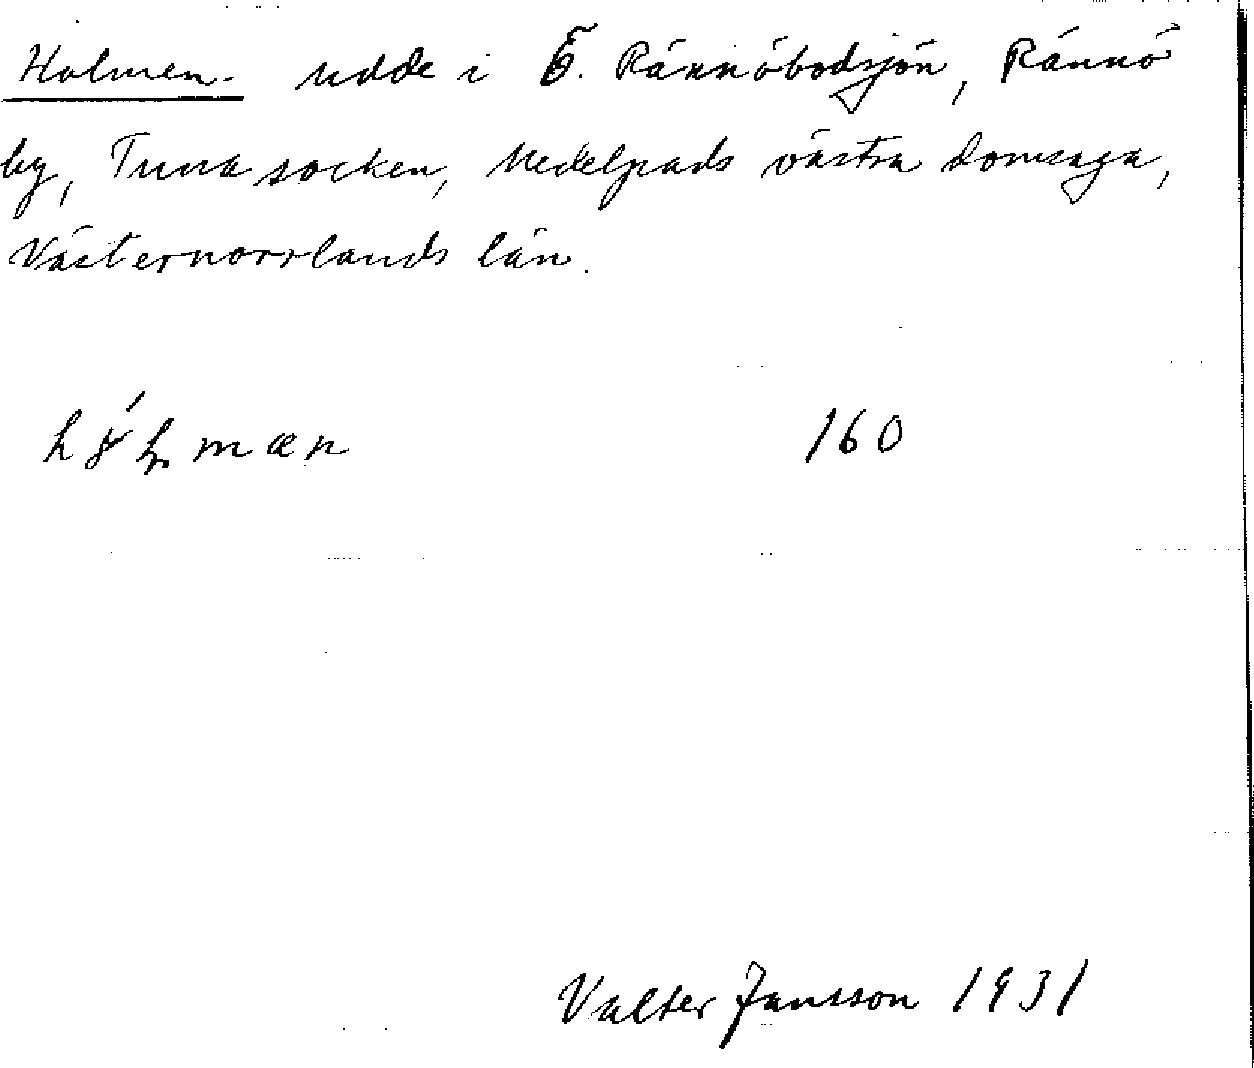 Holmen. udde i Ö. Rännöbodsjön, Rännö
by, Tuna socken, Medelpads västra domsaga,
Västernorrlands län.
160
Valter Jansson 1931